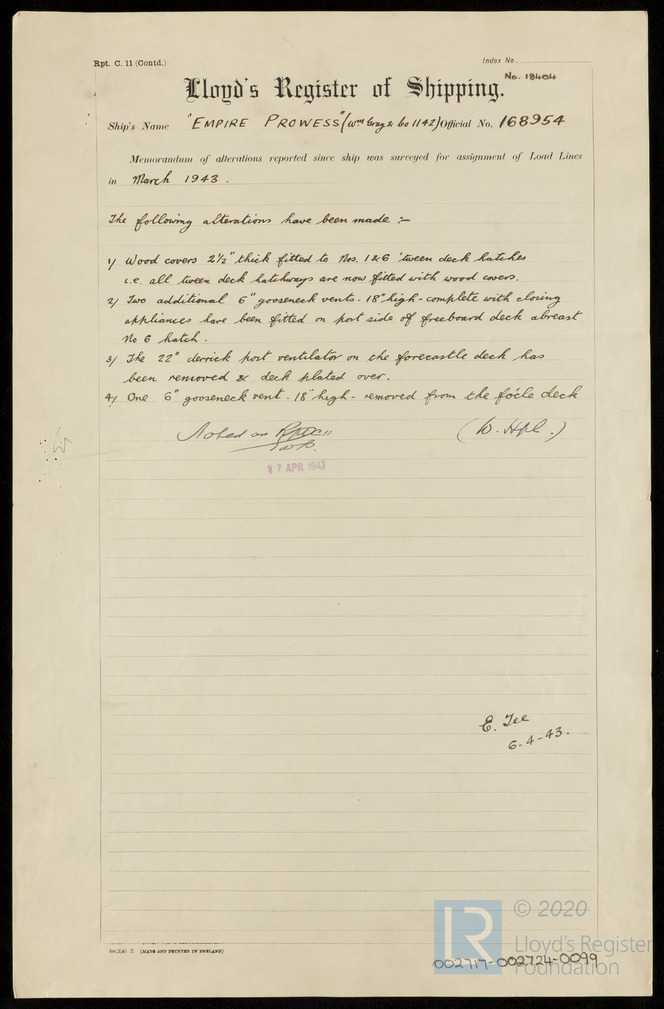 Rpt. C. 11 (Contd.)
Index No.
No. 18404
Lloyd's Register of Shipping.
Ship's Name "EMPIRE PROWESS" (Wm Gray & Co 1142) Official No. 168954
Memorandum of alterations reported since ship was surveyed for assignment of Load Lines
in March 1943.
The following alterations have been made :-
1/ Wood covers 2½" thick fitted to Nos. 1 & 6 'tween deck hatches
i.e. all tween deck hatchways are now fitted with wood covers.
2/ Two additional 6" gooseneck vents - 18" high - complete with closing
appliances have been fitted on port side of freeboard deck abreast
No 6 hatch.
3/ The 22" derrick post ventilator on the forecastle deck has
been removed & deck plated over.
4/ One 6" gooseneck vent - 18" high - removed from the fo'cle deck
Noted on Rpt C 11
(W. Hpl.)
17 APR 1943
E. Tee
6-4-43.
(MADE AND PRINTED IN ENGLAND)
LR
© 2020
Lloyd's Register
Foundation
002717-002724-0099